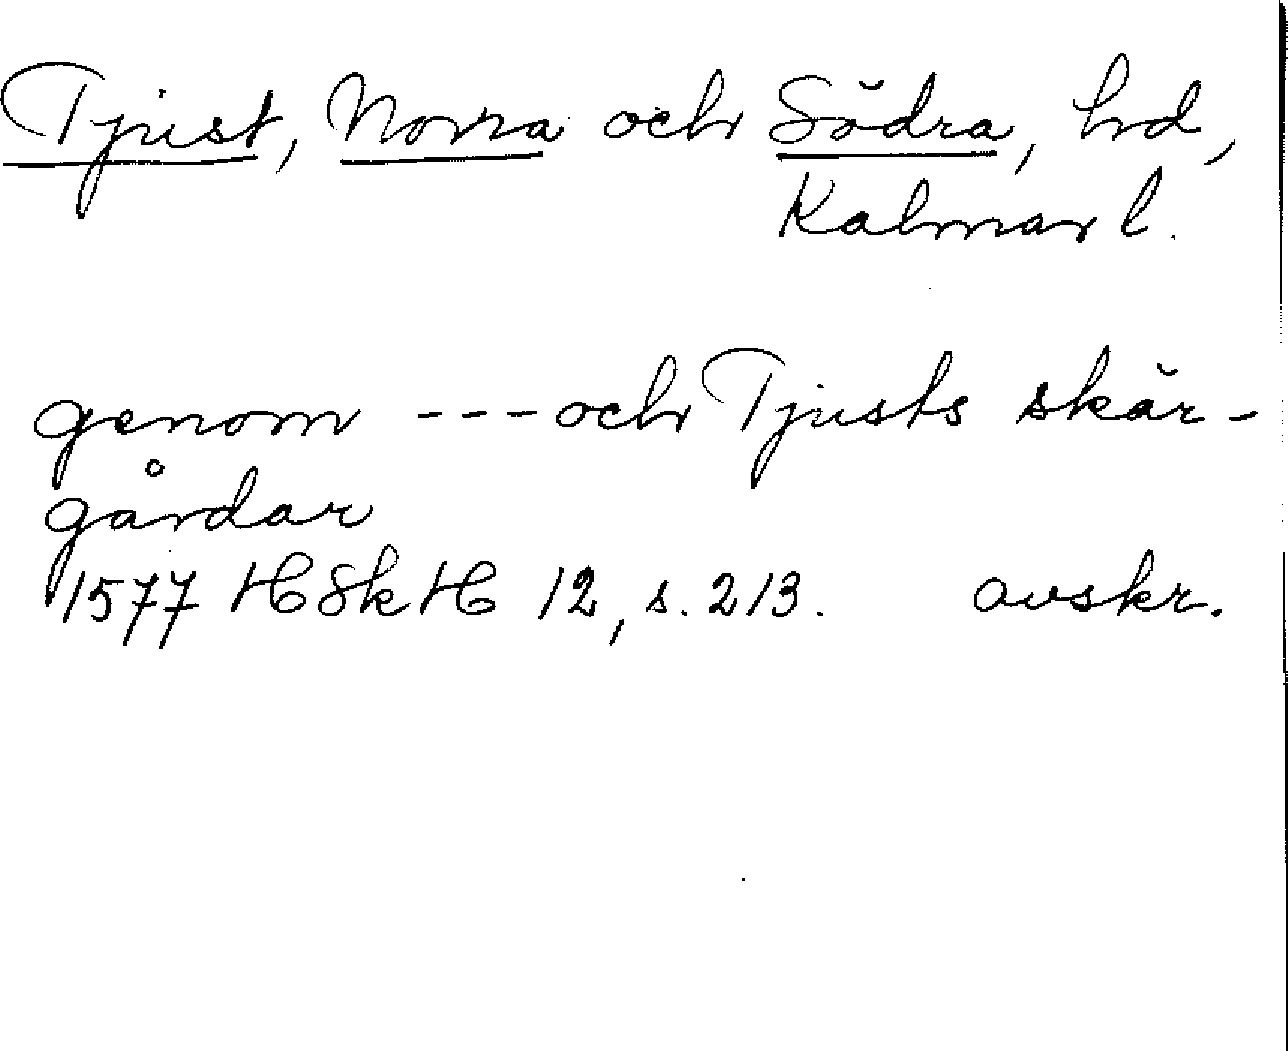 Tjust, Norra och Södra, hd,
Kalmar l.
genom --- och Tjusts skär-
gårdar
1577 HSkH 12, s. 213. avskr.